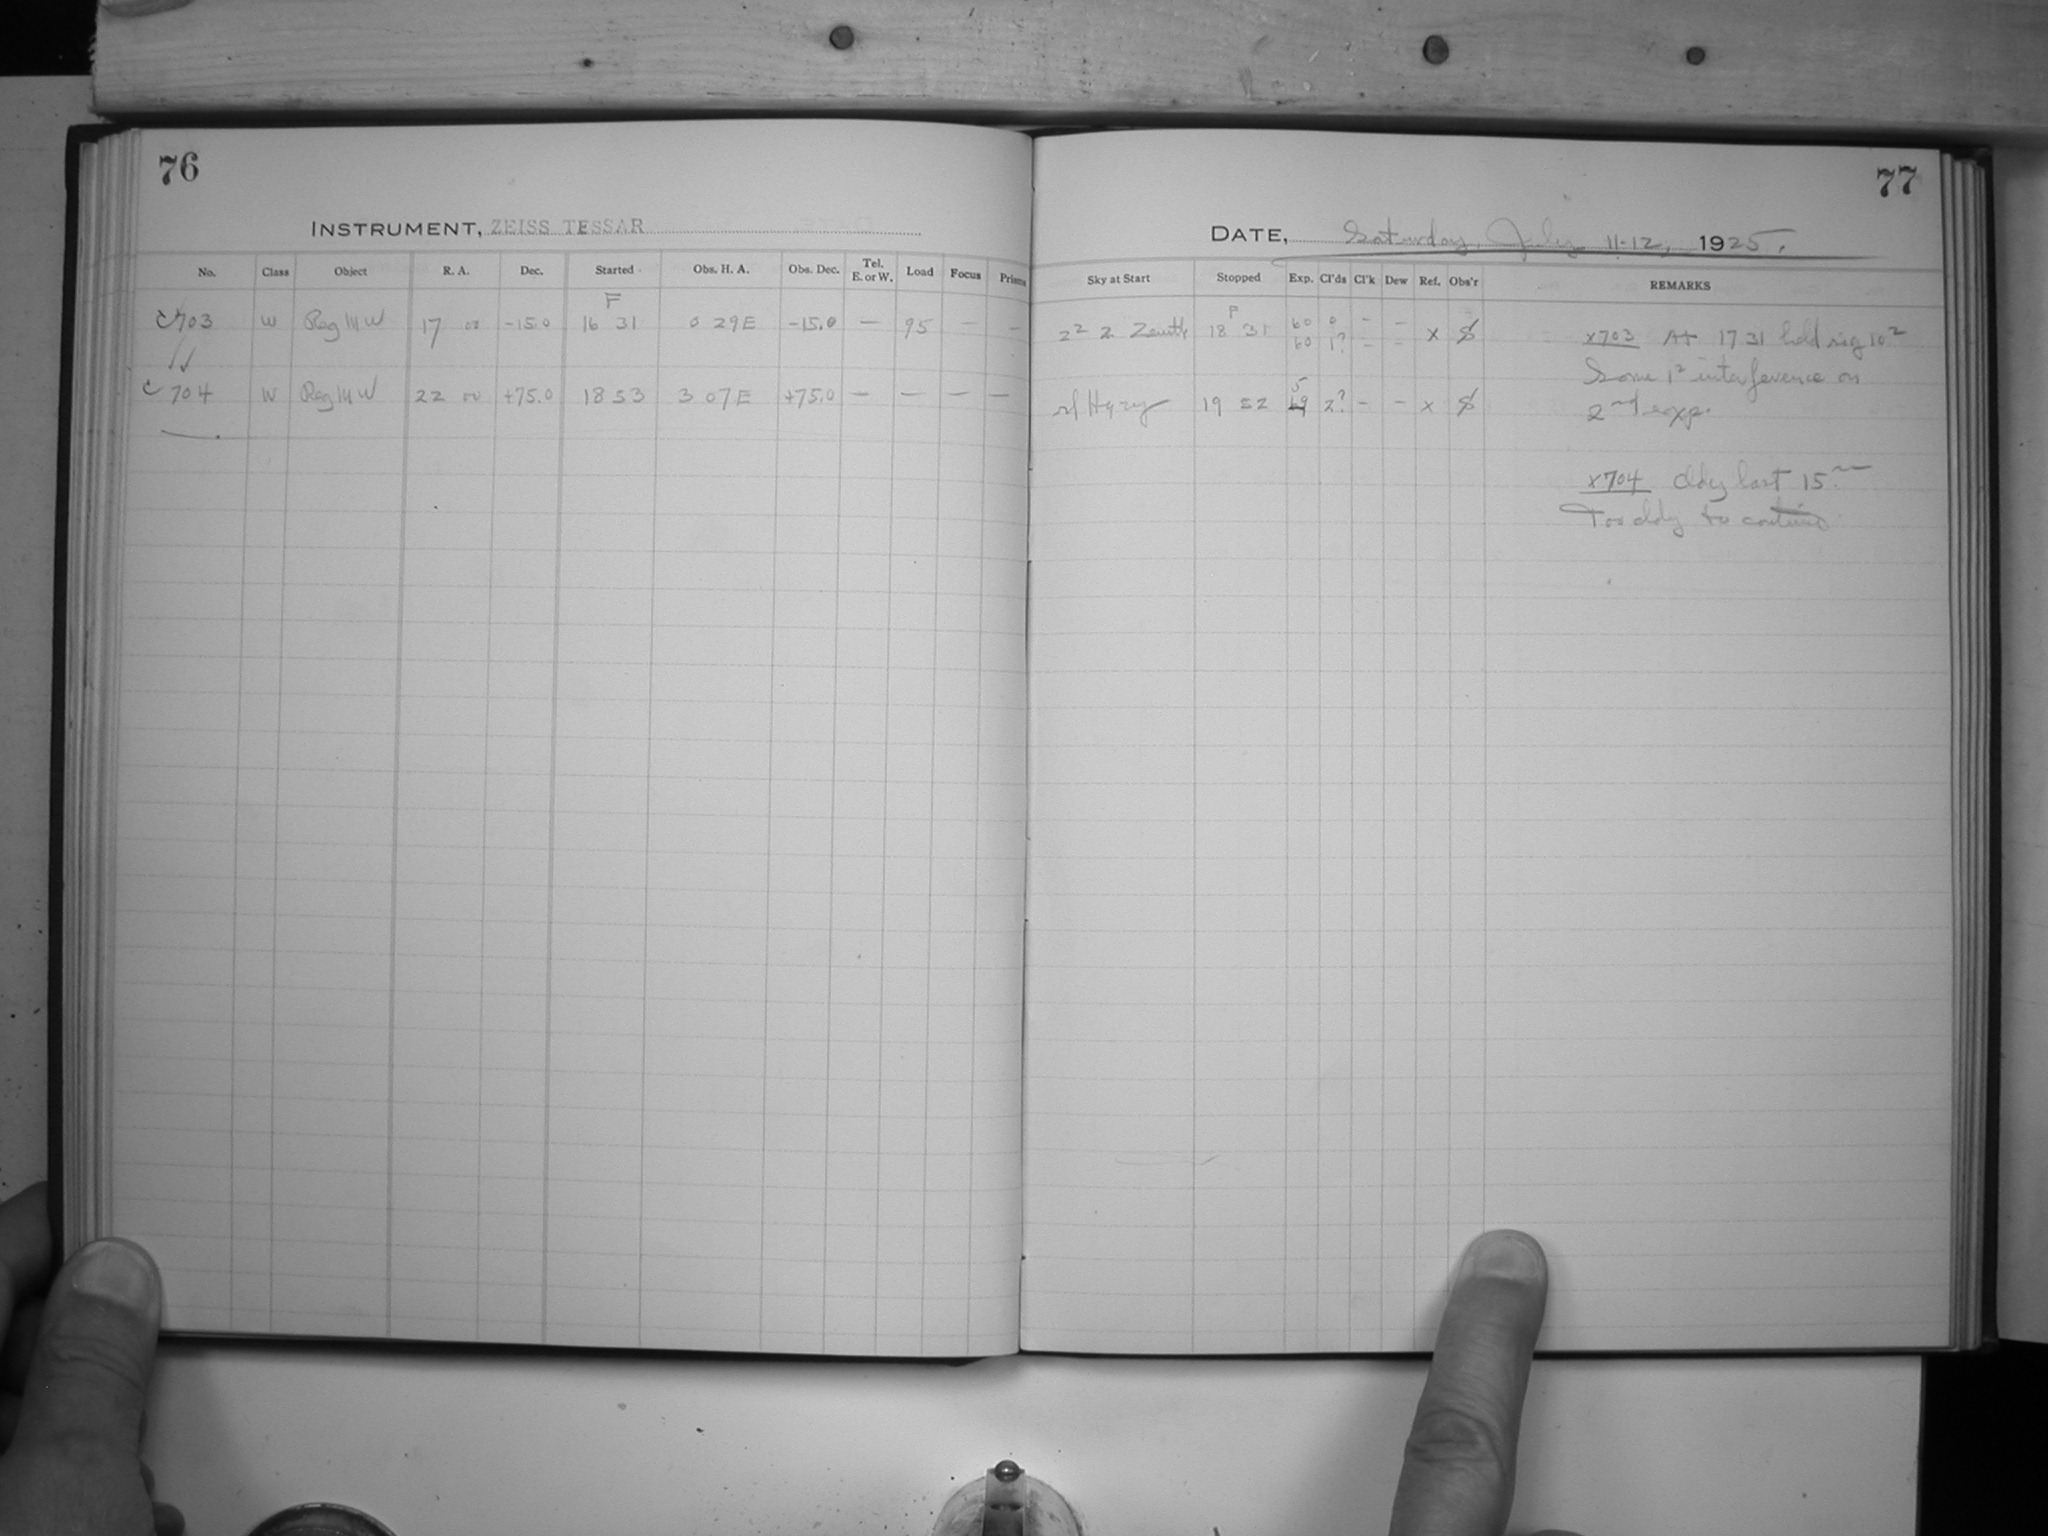 76
INSTRUMENT, ZEISS TESSAR
No. Class Object R. A. Dec. Started Obs. H. A. Obs. Dec. Tel. E. or W. Load Focus Prisms
F
703 W Reg W 17 00 -15.0 16 31 0 29E -15.0 — 95 — —
704 W Reg W 22 00 +75.0 18 53 3 07E +75.0 — — — —
77
DATE, Saturday, July 11-12, 1925.
Sky at Start Stopped Exp. Cl'ds Cl'k Dew Ref. Obs'r REMARKS
2² 2 Zenith 18 31 60 0 — — x x703 At 17 31 10²
60 1? — — Some 1² interference on
Hazy 19 52 59 2? — — x 2nd exp.
x704 Cldy last 15m
Too cldy to continue